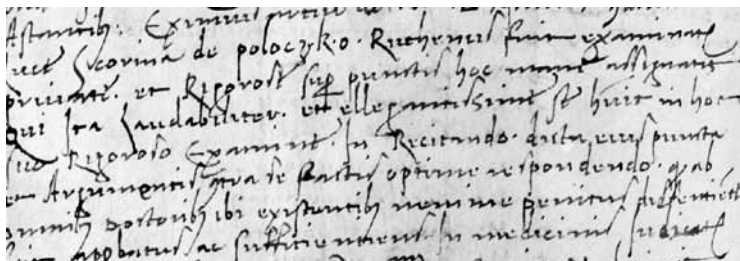 Astantib. Eximius artiu
luce Scorina de poloczko. Ruthenus fuit examinatus
privatim. et Rigorose sup punctis hoc mane assignatis
qui Ita Laudabiliter. et ellegantissime se habuit in hoc
suo Rigoroso Examine. In Recitando. dicta eius puncta
et Argumentis contra se factis optime respondendo. q ab
omnib doctorib ibi existentib nemine penitus dissentiente
approbatus ac sufficientem In medicinis Iudicatus